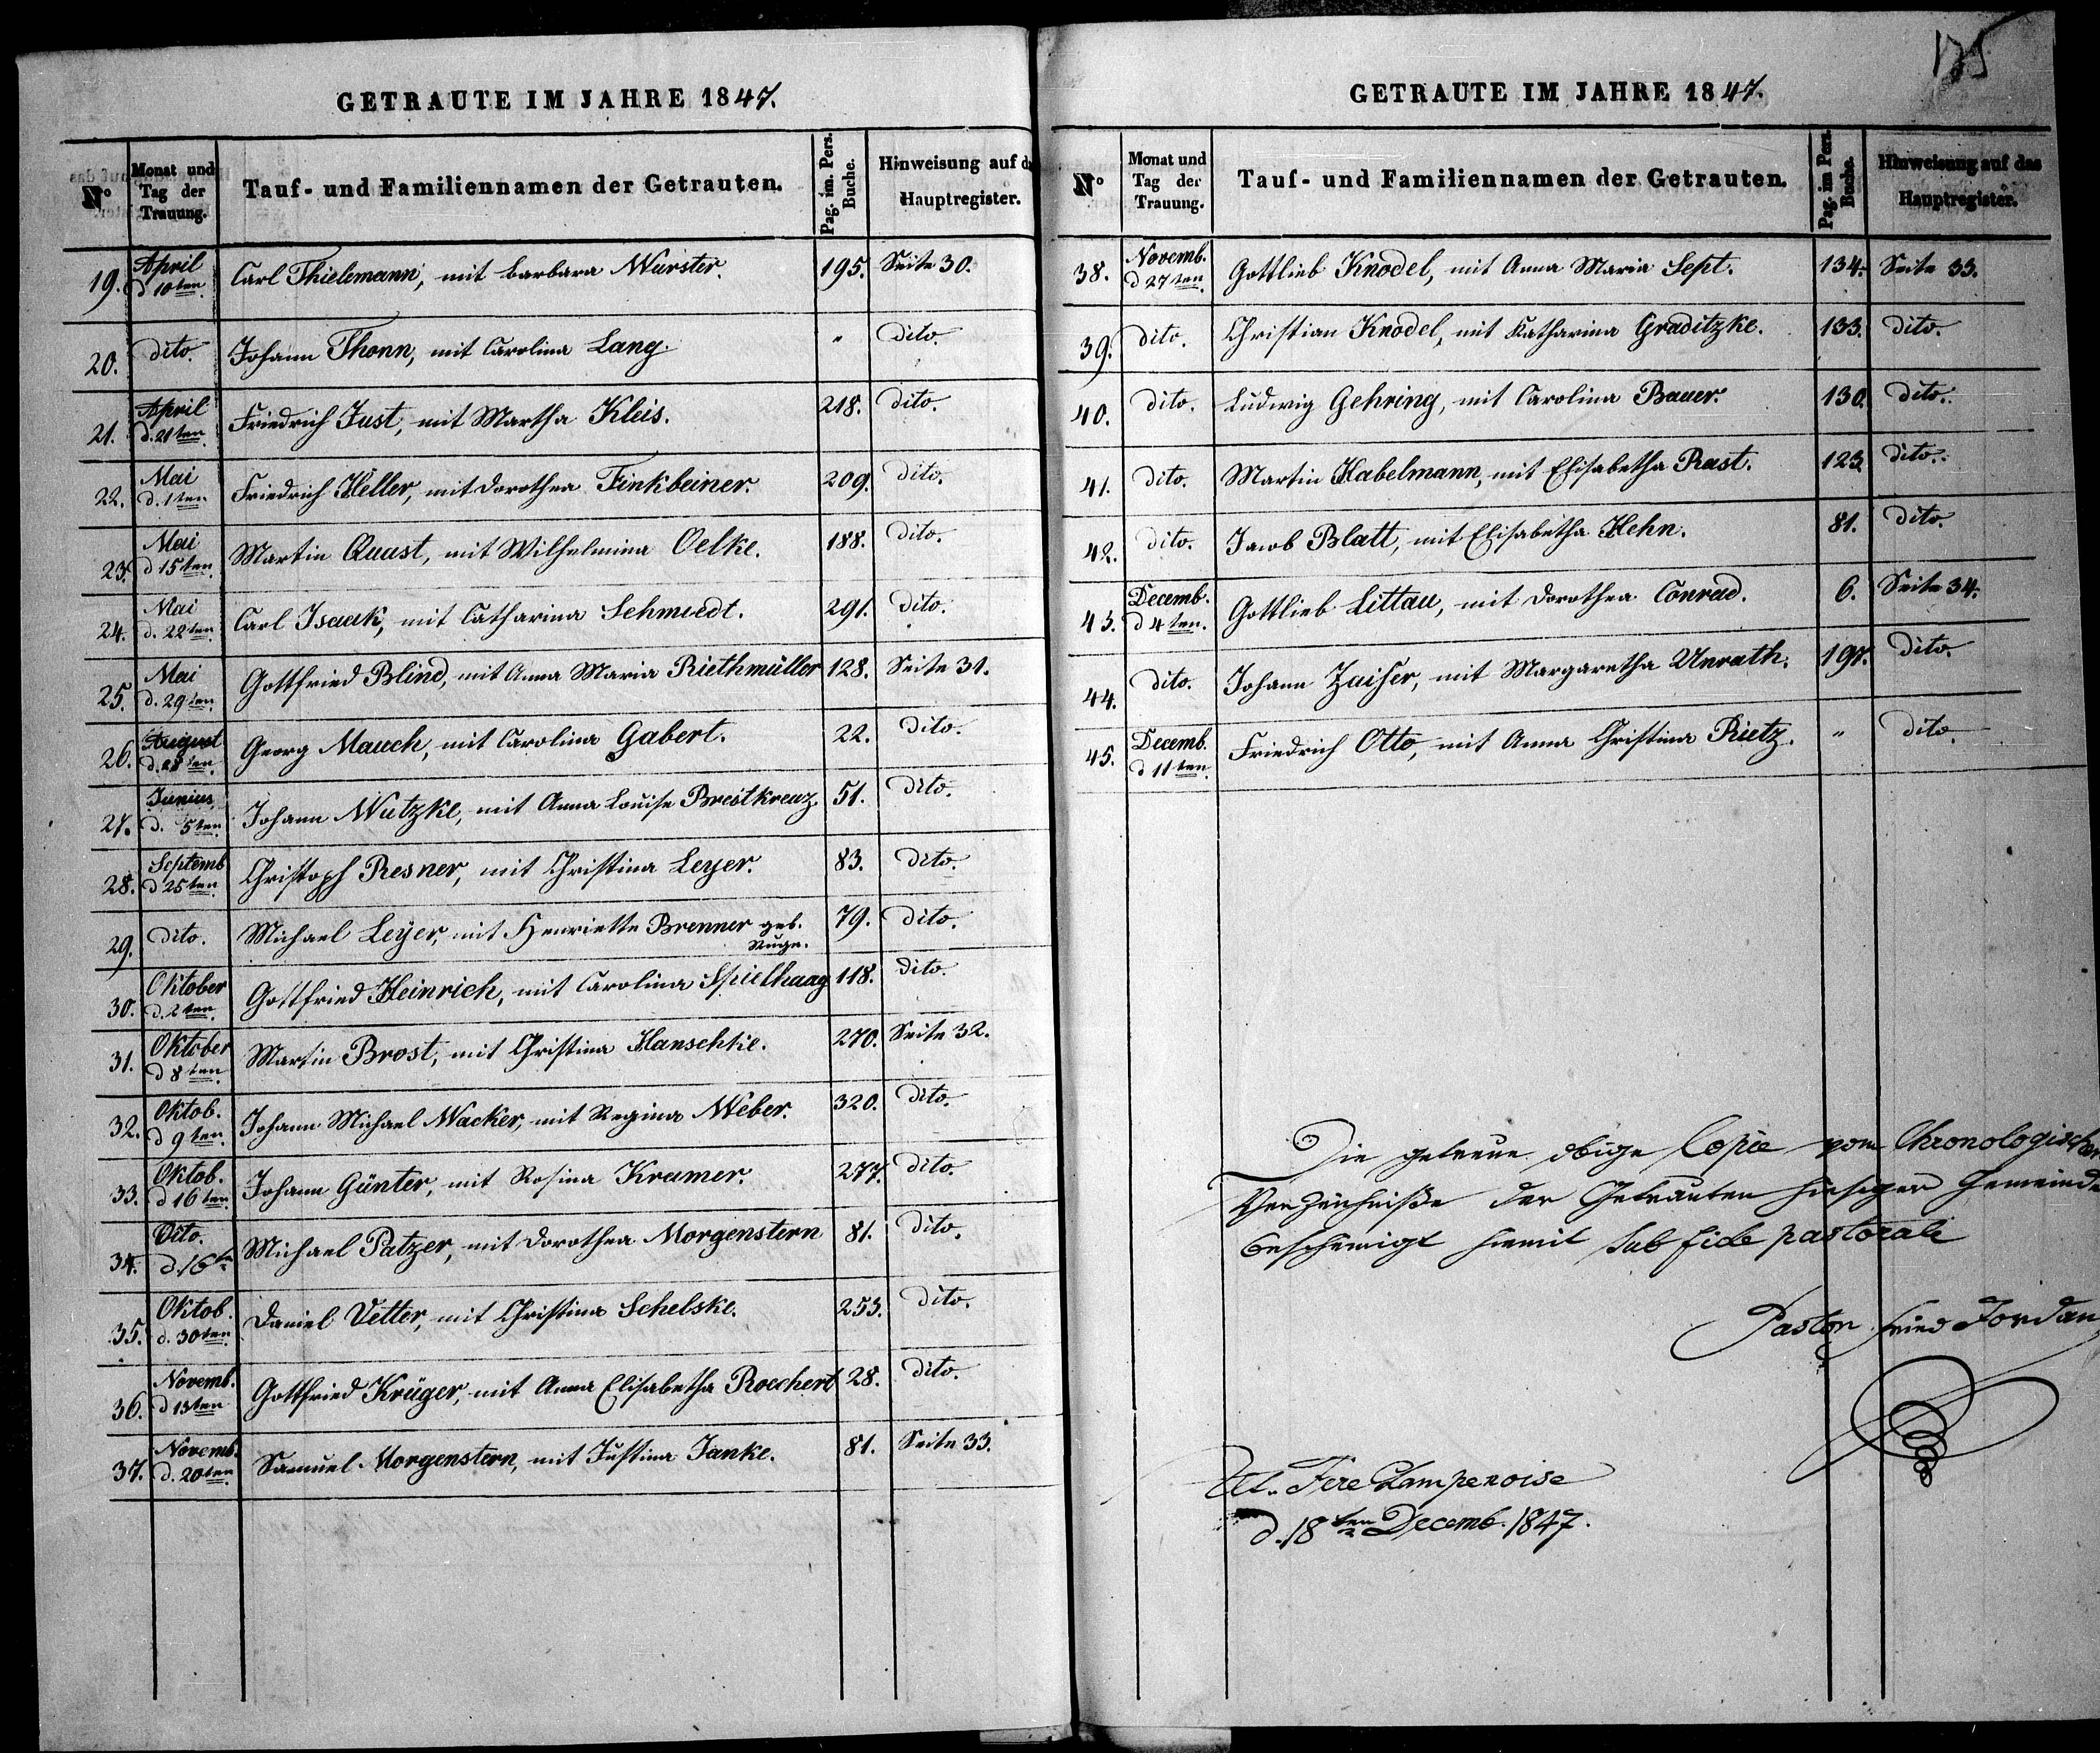 GETRAUTE IM JAHRE 1847.
N° Monat und Tag der Trauung. Tauf- und Familiennamen der Getrauten. Pag. im. Pers. Buche. Hinweisung auf d Hauptregister.
19. April d 10ten. Carl Thielemann, mit Barbara Wurster. 195. Seite 30.
20. dito. Johann Thonn, mit Carolina Lang. " dito.
21. April d. 21ten. Friedrich Just, mit Martha Kleis. 218. dito.
22. Mai d. 1ten Friedrich Heller, mit Dorothea Finkbeiner. 209. dito.
23. Mai d 15ten Martin Quast, mit Wilhelmina Oelke. 188. dito.
24. Mai d. 22ten Carl Isaak, mit Catharina Schmiedt. 291. dito.
25. Mai d. 29ten Gottfried Blind, mit Anna Maria Riethmüller 128. Seite 31.
26. August d. 28ten. Georg Mauch, mit Carolina Gabert. 22. dito.
27. Junius, d. 5ten Johann Wutzke, mit Anna Louise Brestkreuz. 51. dito.
28. Septemb d 25ten. Christoph Resner, mit Christina Leyer. 83. dito.
29. dito. Michael Leyer, mit Henriette Brenner geb. 79. dito.
Ruge.
30. Oktober d. 2ten. Gottfried Heinrich, mit Carolina Spielhaag 118. dito.
31. Oktober d 8ten Martin Brost, mit Christina Hanschkie. 270. Seite 32.
32. Oktob. d 9ten. Johann Michael Wacker, mit Regina Weber. 320. dito.
33. Oktob. d 16ten Johann Günter, mit Rosina Kramer. 277. dito.
34. Dito. d. 16tn Michael Patzer, mit Dorothea Morgenstern 81. dito.
35. Oktob. d. 30ten Daniel Vetter, mit Christina Schelske. 253. dito.
36. Novemb. d 13ten Gottfried Krüger, mit Anna Elisabetha Roechert 28. dito.
37. Novemb. d. 20ten Samuel Morgenstern, mit Justina Janke. 81. Seite 33.
135
GETRAUTE IM JAHRE 1847.
N° Monat und Tag der Trauung. Tauf- und Familiennamen der Getrauten. Pag. im Pers. Buche. Hinweisung auf das Hauptregister.
38. Novemb. d 27ten. Gottlieb Knodel, mit Anna Maria Sept. 134. Seite 33.
39. dito. Christian Knodel, mit Katharina Graditzke. 133. dito.
40. dito. Ludwig Gehring, mit Carolina Bauer. 130. dito.
41. dito. Martin Habelmann, mit Elisabetha Rast. 123 dito.
42. dito. Jacob Blatt, mit Elisabetha Hehn. 81. dito.
43. Decemb. d 4ten. Gottlieb Littau, mit Dorothea Conrad. 6. Seite 34.
44. dito. Johann Zaiser, mit Margaretha Unrath. 197. dito.
45. Decemb. d 11ten. Friedrich Otto, mit Anna Christina Rietz. " dito.
Die getreue obige Copie vom Chronologischen
Verzeichniße der Getrauten hiesiger Gemeinde
bescheinigt hiemit sub fide pastorale
Pastor Fried Jordan
Alt. Fere Champenoise
d. 18ten Decemb. 1847.